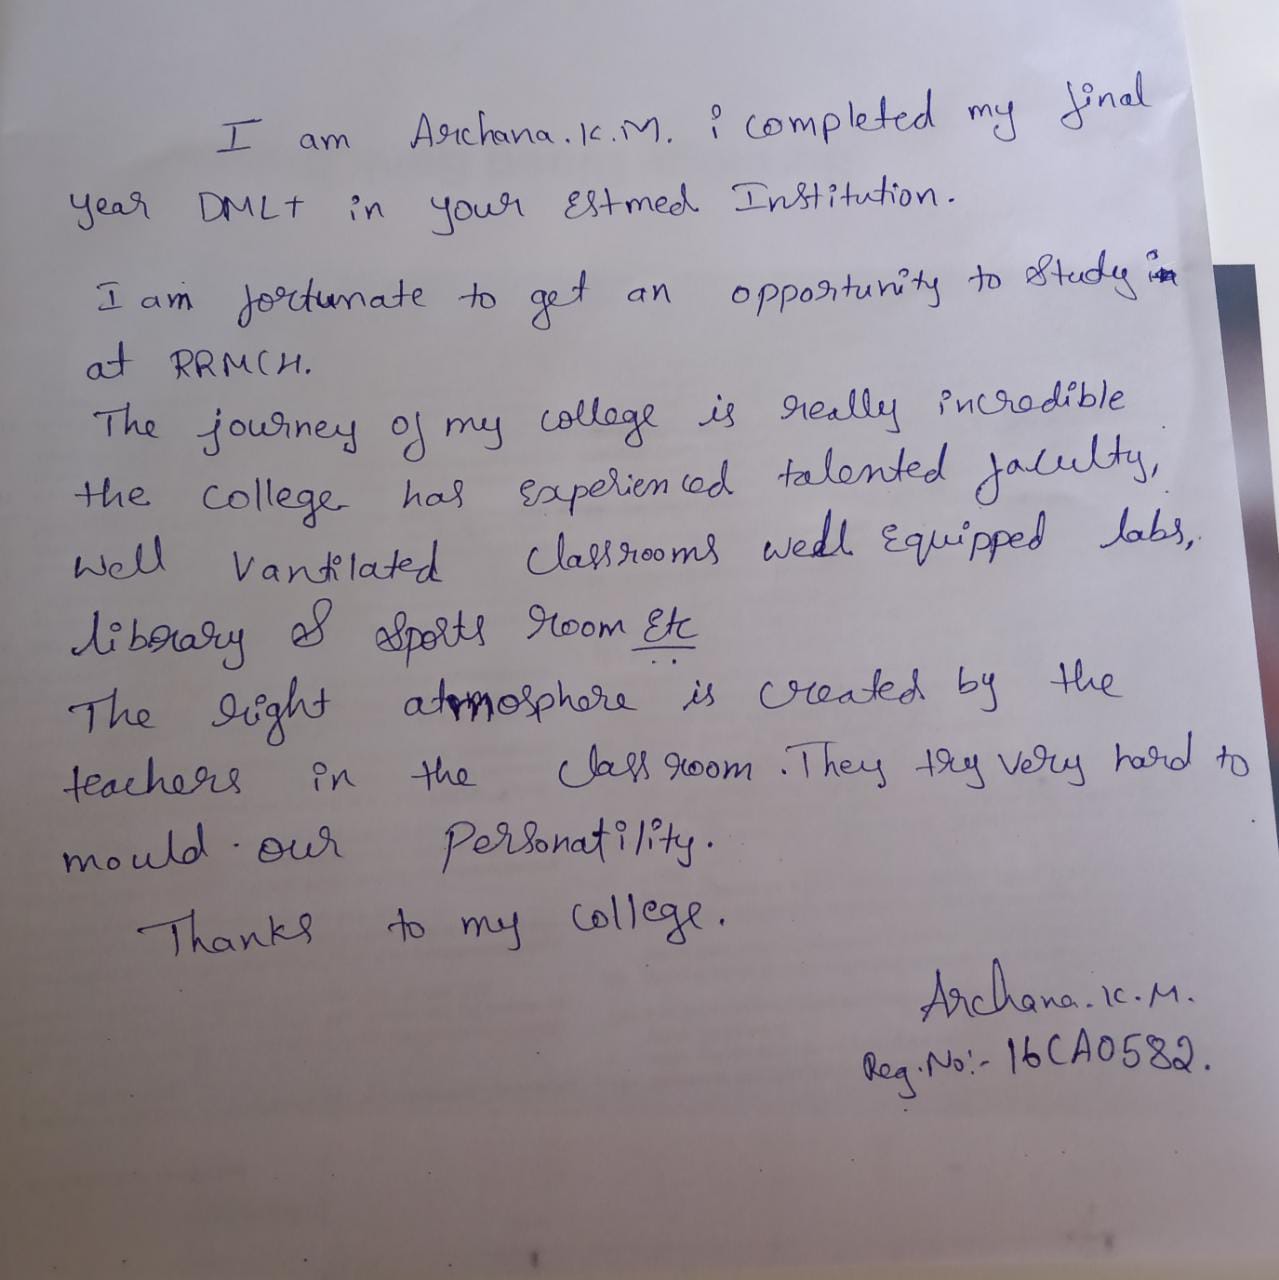 I am Archana.K.M. i completed my final
year DMLT in your Estmed Institution.
I am fortunate to get an opportunity to study in
at RRMCH.
The journey of my college is really incredible
the college has experienced talented faculty,
well vantilated classrooms well equipped labs,
library & sports room Etc
The right atmosphere is created by the
teachers in the classroom. They try very hard to
mould our personatility.
Thanks to my college.
Archana.K.M.
Reg.No:- 16CA0582.